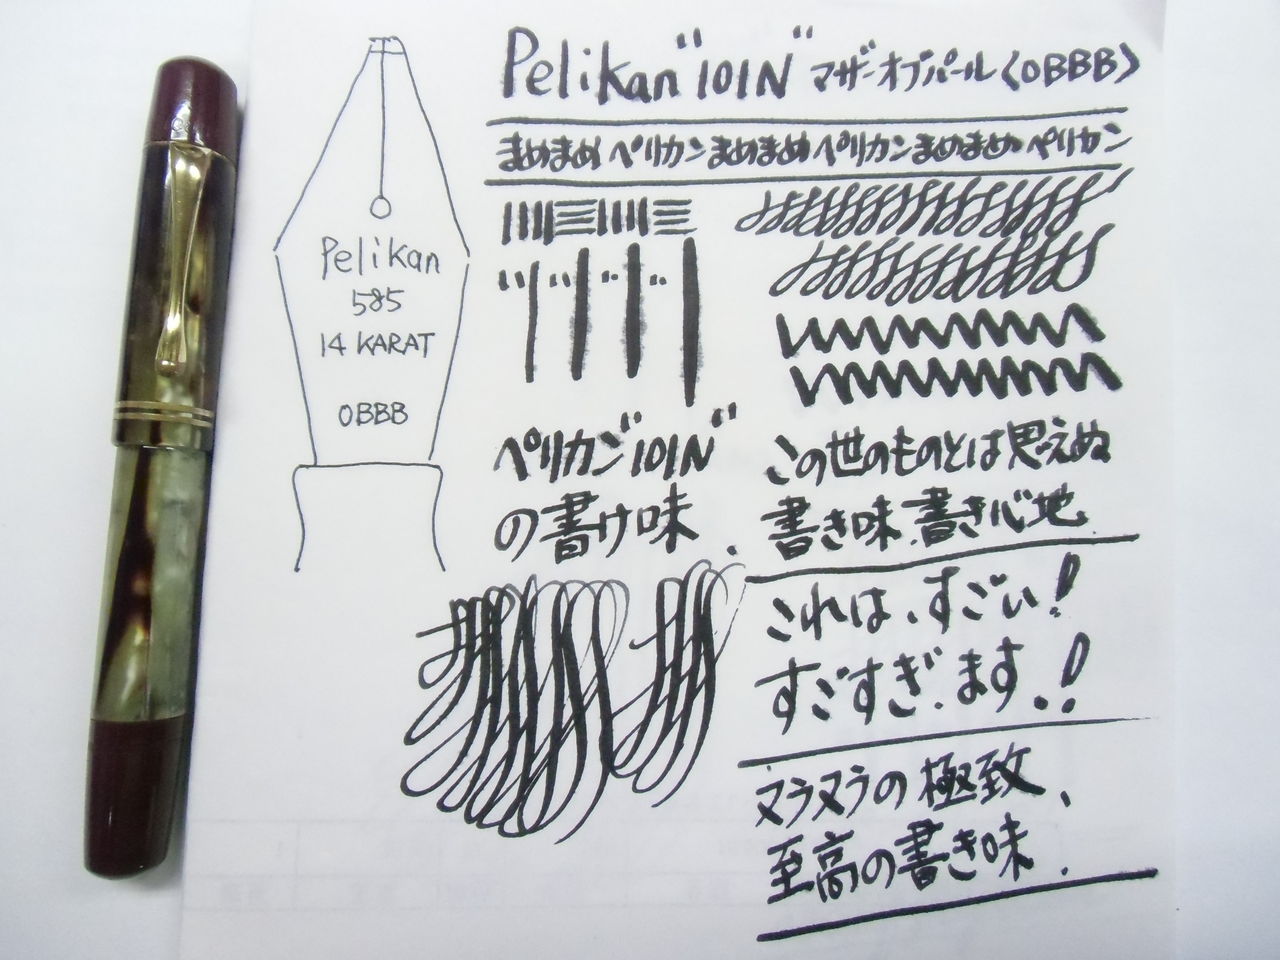 Pelikan "101N" マザーオブパール〈OBBB〉
まめまめペリカンまめまめペリカンまめまめペリカン
Pelikan
585
14 KARAT
OBBB
ペリカン"101N"
の書け味.
この世のものとは思えぬ
書き味.書き心地.
これは、すごい!
すごすぎ.ます.!
ヌラヌラの極致、
至高の書き味.